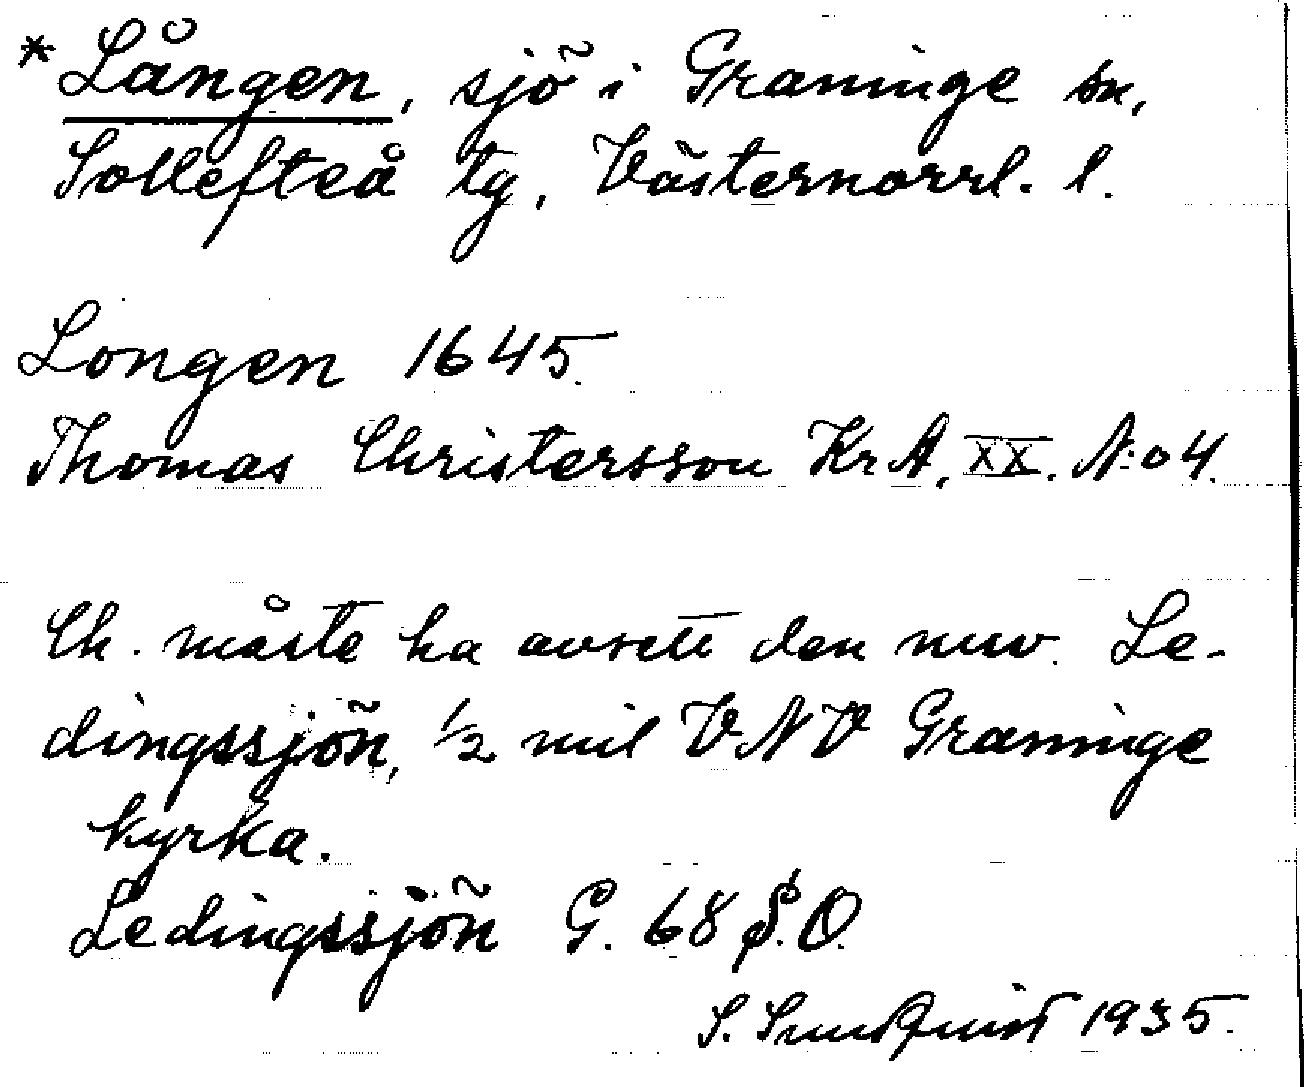 *Lången, sjö i Graninge sn,
Sollefteå tg, Västernorrl. l.
Longen 1645.
Thomas Christersson KrA, XX. N:o 4.
Ch. måste ha avsett den nuv. Le-
dingssjön, 1/2 mil VNV Graninge
kyrka.
Ledingssjön G. 68 S.O.
S. Sundquist 1935.